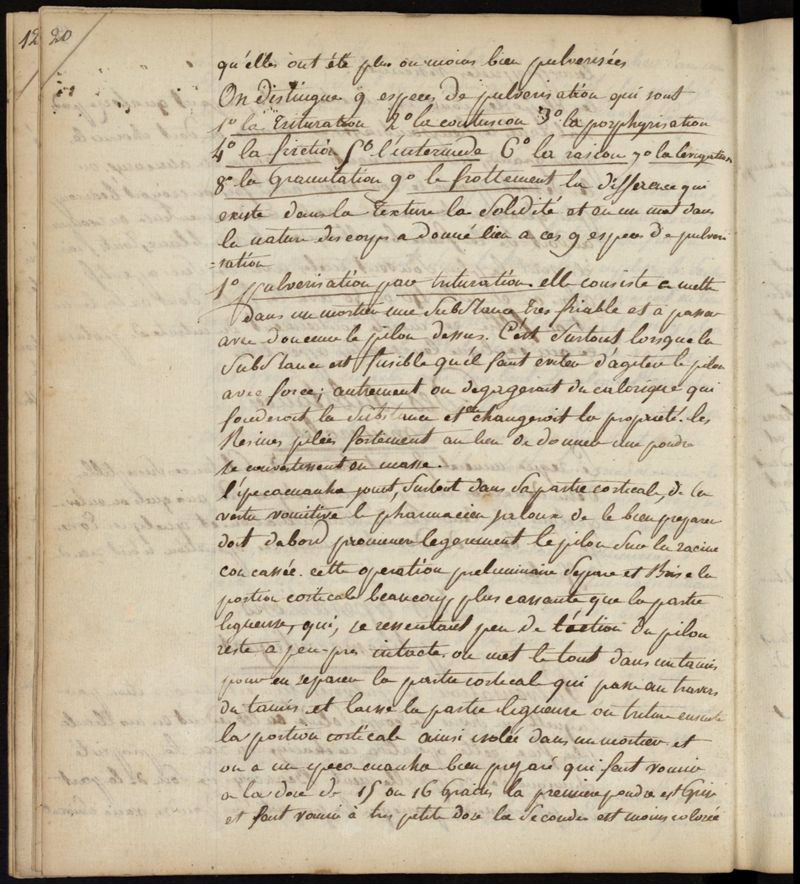 12 20
qu'elles ont été plus ou moins bien pulverisées
On distingue 9 especes de pulverisation qui sont
1º la Trituration 2º la contusion 3º la porphyrisation
4º la friction 5º l'intermede 6º la raison 7º la
8º la Granulation 9º le frottement la difference qui
existe dans la Texture la Solidité et en un mot dans
la nature des corps a donné lieu a ces 9 especes de pulveri
=sation
1º pulverisation par trituration. elle consiste a mettre
dans un mortier une Substance tres friable et a passer
avec douceur le pilon dessus. C'est Surtout lorsque la
Substance est fusible qu'il faut eviter d'agiter le pilon
avec force; autrement on degageroit du calorique qui
fonderoit la Substance et en changeroit la propriété. les
Resines pilées fortement au lieu de donner une poudre
se convertissent en masse.
l'ipecacuanha jouit, Surtout dans Sa partie corticale, de la
vertu vomitive le pharmacien jaloux de le bien preparer
doit dabord promener legerement le pilon Sur la racine
concassée. cette operation preliminaire Separe et Brise la
portion corticale beaucoup plus cassante que la partie
ligneuse, qui, se ressentant peu de l'action du pilon
reste a peu-près intacte. on met le tout dans un tamis
pour en separer la partie corticale qui passe au travers
du tamis et laisse la partie ligneuse on triture ensuite
la portion corticale ainsi isolée dans un mortier et
on a un ipecacuanha bien preparé qui fait vomir
a la dose de 15 ou 16 Grains la premiere poudre est Grise
et fait vomir à très petite dose la Seconde est moins colorée